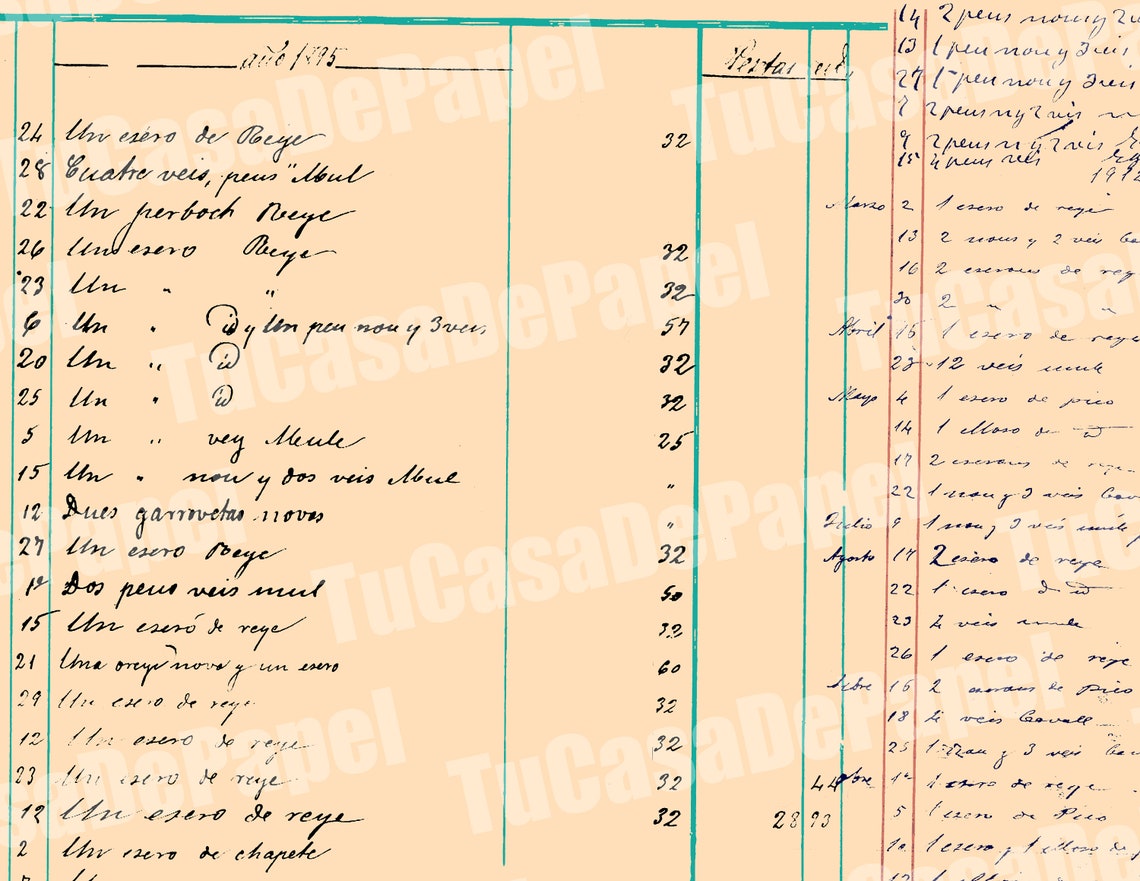 año 1895
Pestas
24 Un esero de Reye 32
28 Cuatre veis, peus " Mul
22 Un perboch Reye
26 Un esero Reye 32
23 Un " " 32
6 Un " id y Un peu nou y 3 veis 57
20 Un " id 32
25 Un " id 32
5 Un " vey Meule 25
15 Un " nou y dos veis Mul "
12 Dues garrovetas novas "
27 Un esero Reye 32
1º Dos peus veis mul 50
15 Un eseró de reye 32
21 Una oreye nova y un esero 60
29 Un esero de reye 32
12 Un esero de reye 32
23 Un esero de reye 32 44
12 Un esero de reye 32 28 93
2 Un esero de chapete
14 2 peus nou y 2
13 1 peu nou y 3 veis
27 1 peu nou y 3 veis
7 2 peus n y 2 vis
9 2 peus n y 2 vis
15 4 peus veis
1912
Marzo 2 1 esero de reye
13 2 nous y 2 veis
16 2 eseraus de rey
30 2 " "
Abril 15 1 esero de reye
23 12 veis mule
Mayo 4 1 esero de pico
14 1 Moso de id
17 2 eseraus de reye
22 1 nou y 3 veis
Julio 9 1 nou y 3 veis mule
Agosto 17 2 esero de reye
22 1 esero de id
23 4 veis mule
26 1 esero de reye
16 2 eseraus de pico
18 4 veis Cavall
25 1 nou y 3 veis
1º 1 esero de reye
5 1 esero de Pico
1 esero y 1 Moso de
TuCasaDePapel